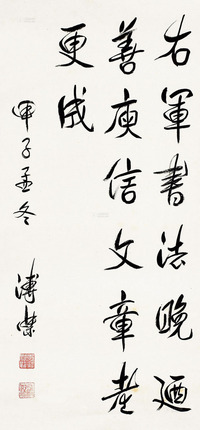 右軍書法晚迺
善庾信文章老
更成
甲子孟冬
溥傑